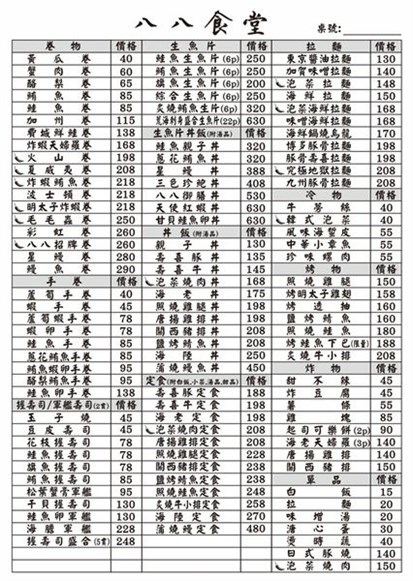 八八食堂
桌號:
卷物 價格
黃瓜卷 40
蟹肉卷 60
酪梨卷 65
鮪魚卷 85
鮭魚卷 85
加州卷 115
費城鮮鮭卷 138
炸蝦天婦羅卷 168
火山卷 198
夏威夷卷 208
炸蝦鮪魚卷 218
波士頓卷 218
明太子炸蝦卷 218
毛毛蟲卷 250
彩虹卷 260
八八招牌卷 260
星鰻卷 280
鰻魚卷 290
手卷 價格
蘆筍手卷 40
蝦手卷 45
蘆筍蝦手卷 68
蝦卵手卷 78
鮭魚手卷 85
蔥花鮪魚手卷 95
鮪魚蝦卵手卷 95
酪梨鮪魚手卷 95
鮭魚卵手卷 138
握壽司/軍艦壽司(2貫) 價格
玉子燒 45
豆皮壽司 45
花枝握壽司 78
鮭魚握壽司 78
旗魚握壽司 78
鮪魚握壽司 85
松葉蟹膏軍艦 95
干貝握壽司 130
鮭魚卵軍艦 130
海膽軍艦 228
握壽司盛合(5貫) 248
生魚片 價格
鮭魚生魚片(6p) 250
鮪魚生魚片(6p) 250
旗魚生魚片(6p) 250
綜合生魚片(6p) 250
炙燒鮪魚生魚片(6p) 320
花海刺身盛合生魚片(22p) 630
生魚片丼飯(附湯品) 價格
鮭魚親子丼 320
蔥花鮪魚丼 320
星鰻丼 388
三色珍鮑丼 408
八八御膳丼 530
天使紅蝦丼 630
甘貝鮭魚卵丼 630
丼飯(附湯品) 價格
親子丼 130
壽喜豚丼 135
壽喜牛丼 145
泡菜燒肉丼 168
海老丼 175
照燒雞腿丼 198
唐揚雞排丼 198
關西豬排丼 198
鹽烤鯖魚丼 208
海陸丼 250
蒲燒鰻魚丼 450
定食(附白飯,小菜,湯品,甜品) 價格
壽喜豚定食 188
壽喜牛定食 198
海老定食 198
泡菜燒肉定食 208
唐揚雞排定食 228
照燒雞腿定食 228
關西豬排定食 238
鹽烤鯖魚定食 238
照燒鮭魚定食 248
炙燒牛小排定食 258
海陸定食 270
蒲燒鰻魚定食 480
拉麵 價格
東京醬油拉麵 130
加賀味噌拉麵 140
泡菜拉麵 148
海鮮拉麵 150
泡菜海鮮拉麵 168
味噌海鮮拉麵 168
海鮮鍋燒烏龍 170
博多豚骨拉麵 198
豚骨壽喜拉麵 198
究極地獄拉麵 208
九州豚骨拉麵 208
冷物 價格
牛蒡絲 40
韓式泡菜 40
風味海蜇皮 55
中華小章魚 55
珍味螺肉 55
烤物 價格
照燒雞腿 150
烤明太子雞翅 158
烤透抽 160
鹽烤鯖魚 160
照燒鮭魚 180
烤鮭魚下巴(限量) 188
炙燒牛小排 208
炸物 價格
甜不辣 45
炸豆腐 45
薯條 55
雞塊 85
起司可樂餅(2p) 90
海老天婦羅(3p) 140
唐揚雞排 140
關西豬排 150
單品 價格
白飯 15
拉麵 20
味噌湯 20
溏心蛋 30
燙時蔬 40
日式豚燒 140
泡菜燒肉 150